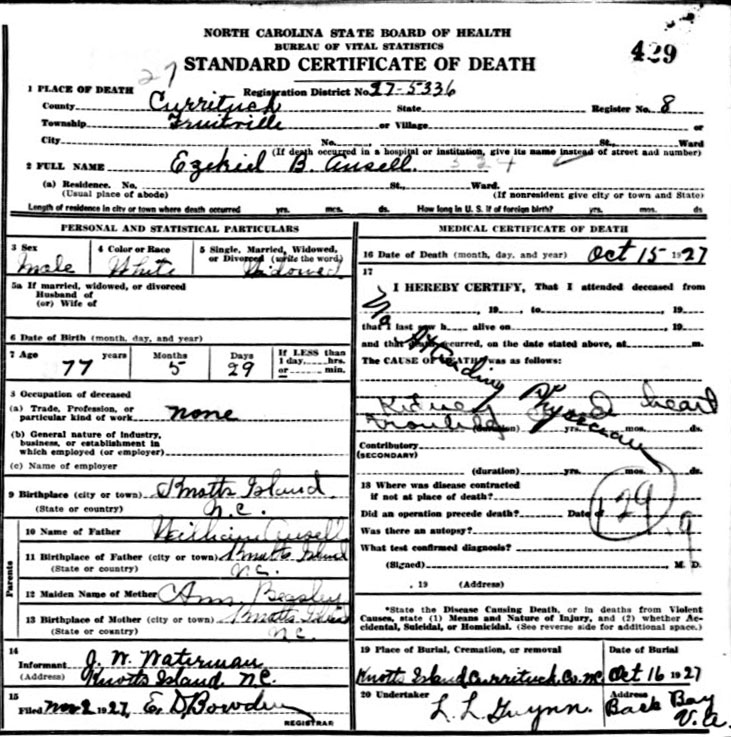 NORTH CAROLINA STATE BOARD OF HEALTH
BUREAU OF VITAL STATISTICS
STANDARD CERTIFICATE OF DEATH
429
27
1 PLACE OF DEATH Registration District No. 27-5336
County Currituck State Register No. 8
Township Fruitville or Village or
City No. St., Ward
(If death occurred in a hospital or institution, give its name instead of street and number)
2 FULL NAME Ezekiel B. Ansell.
(a) Residence. No. St., Ward.
(Usual place of abode) (If nonresident give city or town and State)
Length of residence in city or town where death occurred yrs. mos. ds. How long in U. S. if of foreign birth? yrs. mos. ds.
PERSONAL AND STATISTICAL PARTICULARS
3 Sex 4 Color or Race 5 Single, Married, Widowed, or Divorced (write the word)
Male White Widowed
5a If married, widowed, or divorced
Husband of
(or) Wife of
6 Date of Birth (month, day, and year)
7 Age 77 years Months 5 Days 29 If LESS than 1 day, hrs. or min.
8 Occupation of deceased
(a) Trade, Profession, or particular kind of work none
(b) General nature of industry, business, or establishment in which employed (or employer)
(c) Name of employer
9 Birthplace (city or town) Knotts Island
(State or country) N.C.
Parents
10 Name of Father William Ansell
11 Birthplace of Father (city or town) Knotts Island
(State or country) N.C.
12 Maiden Name of Mother Ann Beasley
13 Birthplace of Mother (city or town) Knotts Island
(State or country) N.C.
14
Informant J. W. Waterman
(Address) Knotts Island, N.C.
15
Filed Nov 2 1927, E. D. Bowden
REGISTRAR
MEDICAL CERTIFICATE OF DEATH
16 Date of Death (month, day, and year) Oct 15 1927
17
I HEREBY CERTIFY, That I attended deceased from
, 19 , to , 19
that I last saw h alive on , 19
and that death occurred, on the date stated above, at m.
The CAUSE OF DEATH was as follows:
No attending Physician
Kidney and heart
trouble
(duration) yrs. mos. ds.
Contributory
(SECONDARY)
(duration) yrs. mos. ds.
18 Where was disease contracted
if not at place of death?
Did an operation precede death? Date of
129
Was there an autopsy?
What test confirmed diagnosis?
(Signed) , M. D.
, 19 (Address)
*State the Disease Causing Death, or in deaths from Violent Causes, state (1) Means and Nature of Injury, and (2) whether Accidental, Suicidal, or Homicidal. (See reverse side for additional space.)
19 Place of Burial, Cremation, or removal Date of Burial
Knotts Island Currituck Co. N.C. Oct 16 1927
20 Undertaker Address
L. L. Gwynn. Back Bay
V.a.